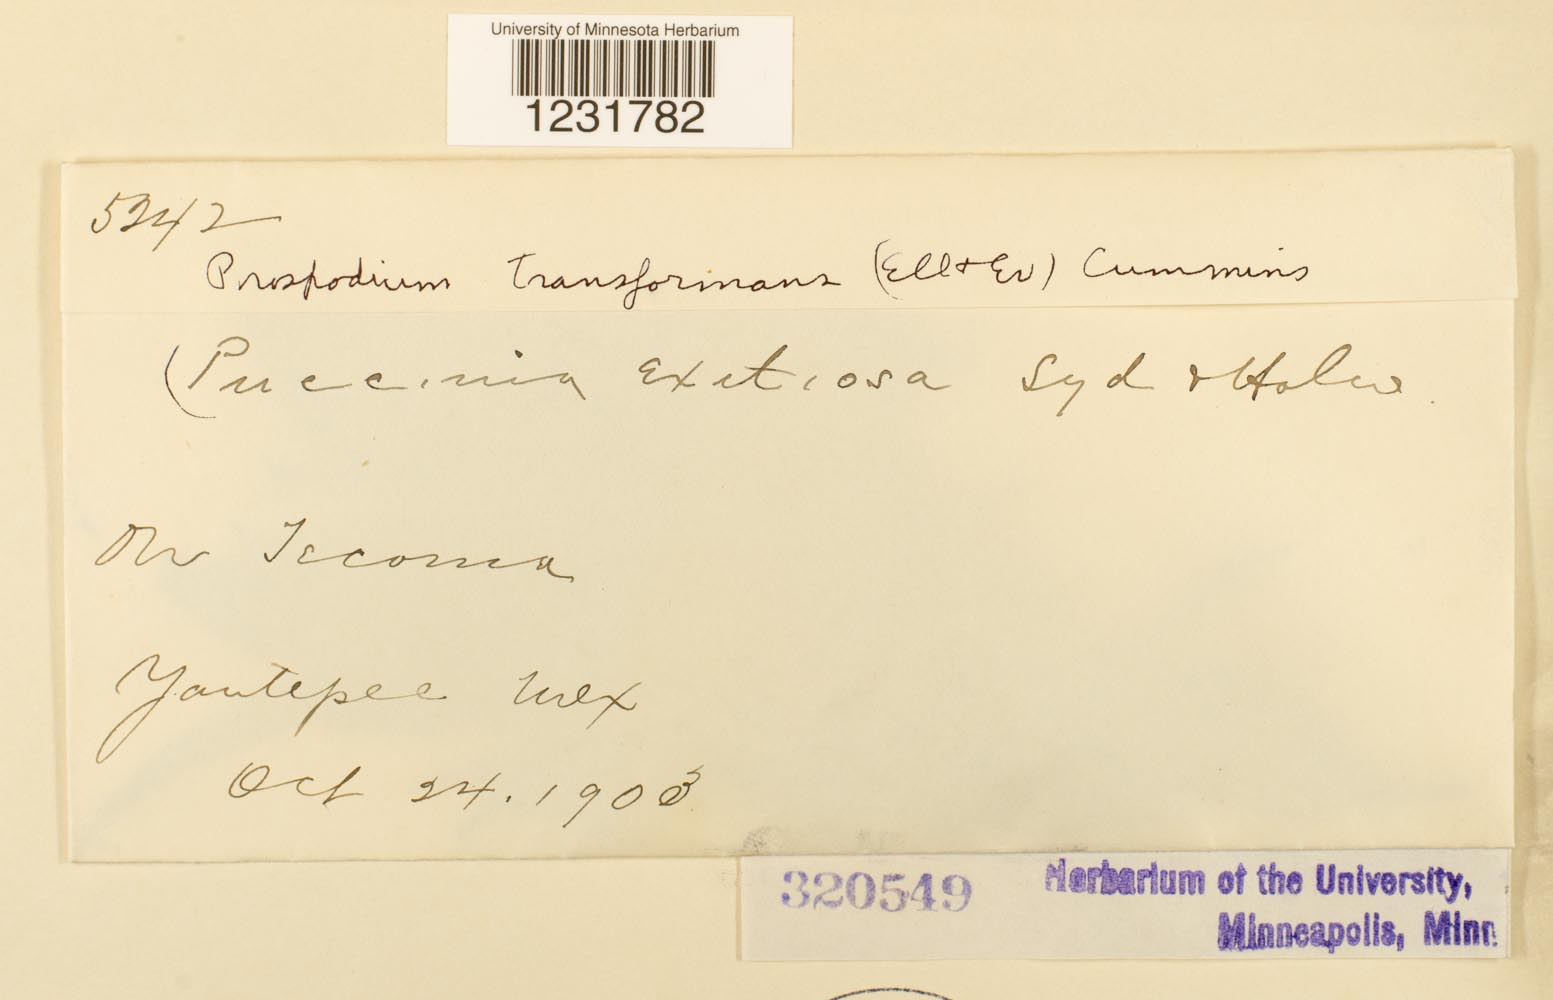 University of Minnesota Herbarium
1231782
5242
Prospodium transformans (Ell & Ev) Cummins
(Puccinia exitiosa Syd & Holw.
On Tecoma
Yautepec Mex
Oct 24. 1903
320549
Herbarium of the University,
Minneapolis, Minn.